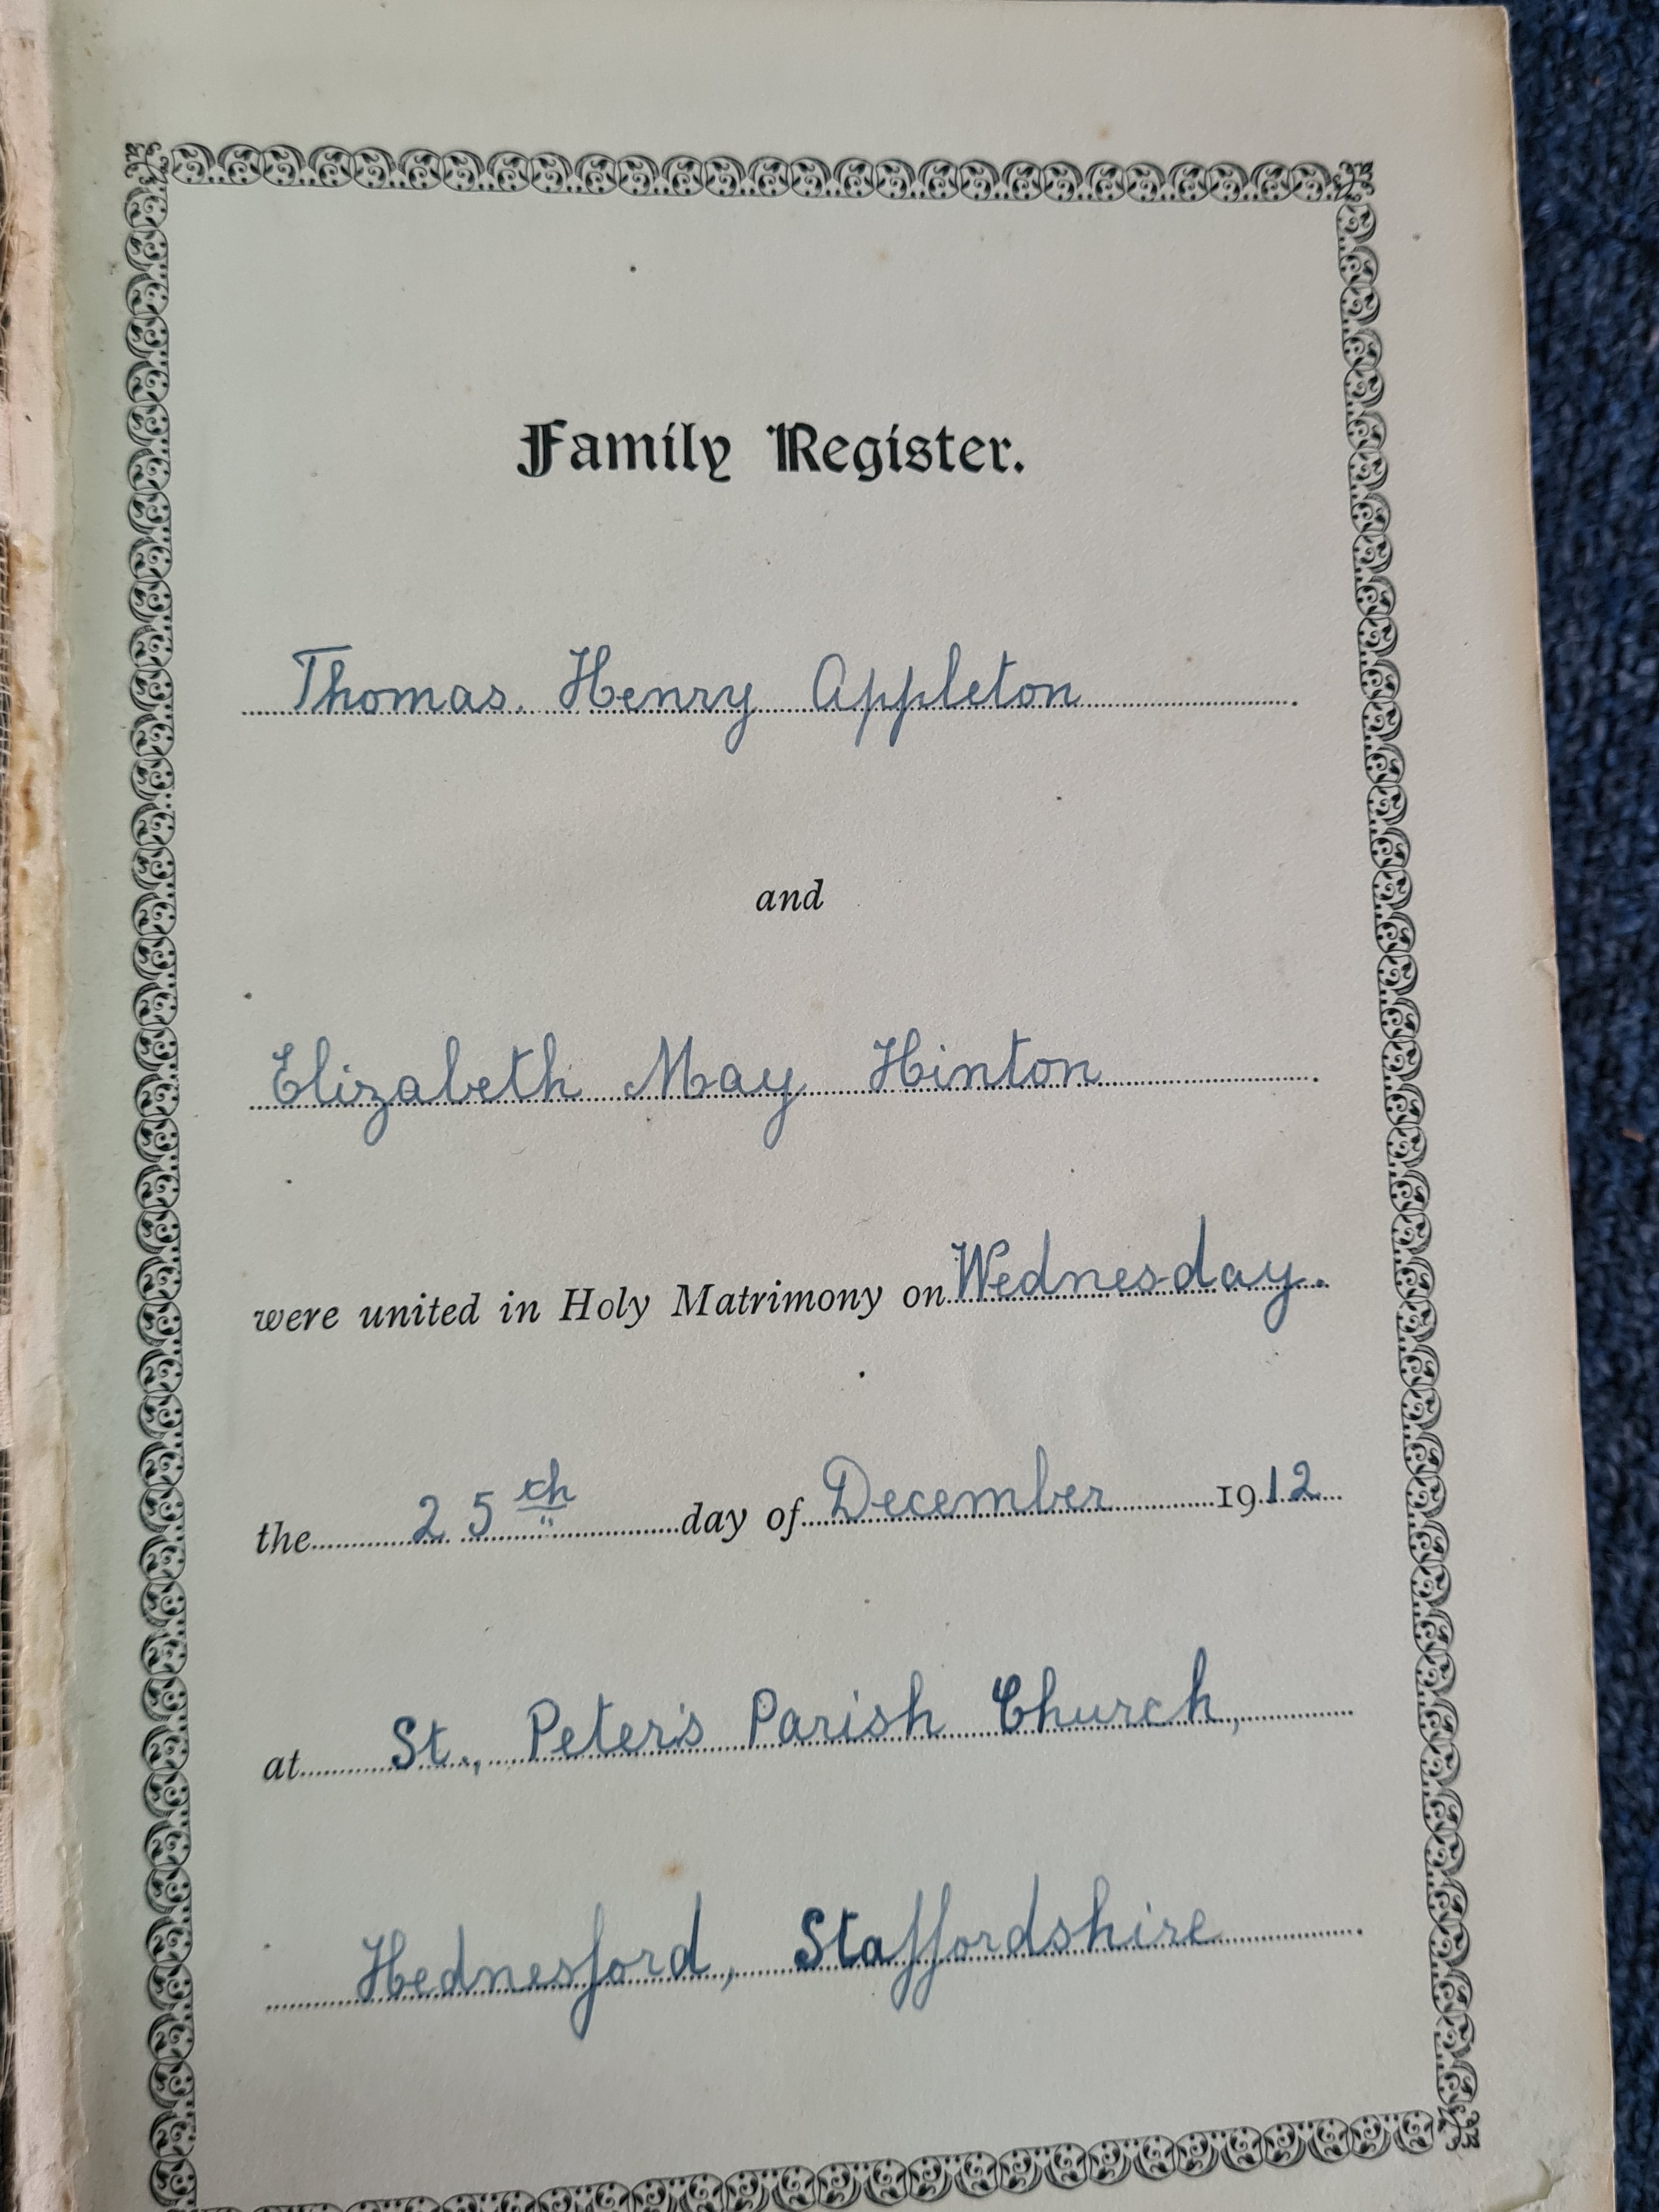 Family Register.
Thomas. Henry Appleton
and
Elizabeth May Hinton
were united in Holy Matrimony on Wednesday.
the 25th day of December 1912
at St., Peter's Parish Church,
Hednesford, Staffordshire